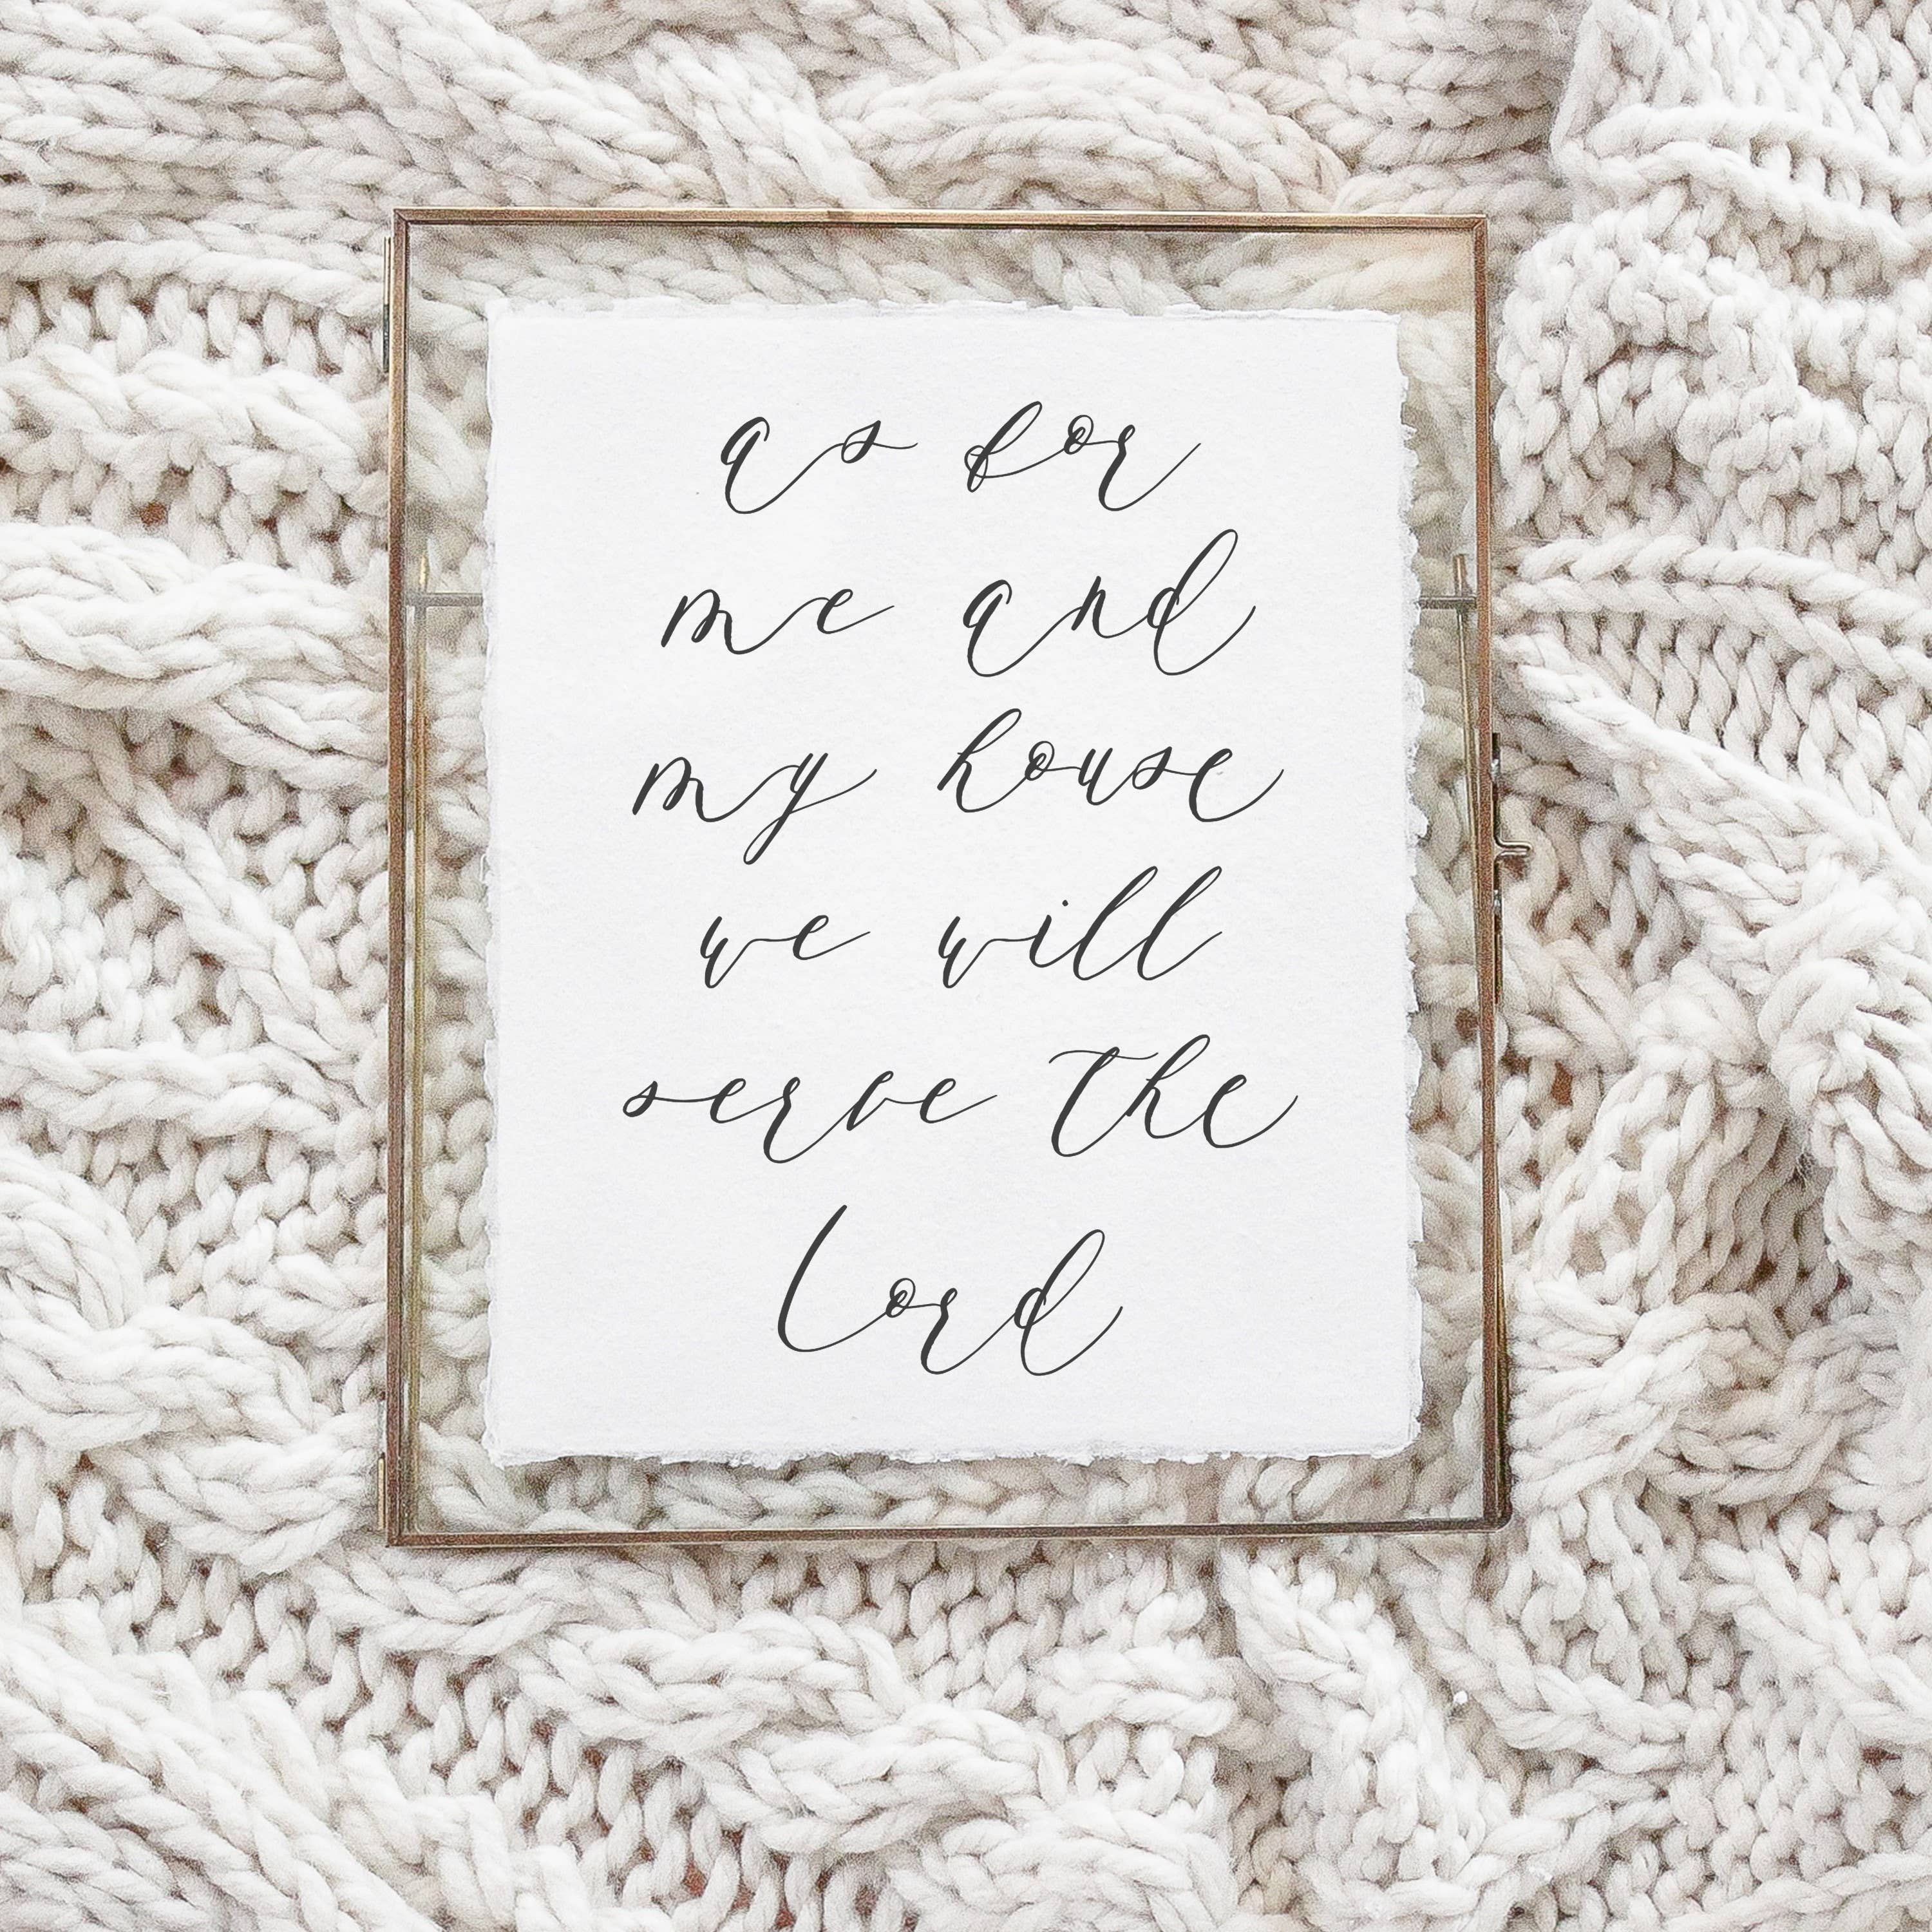 as for
me and
my house
we will
serve the
Lord